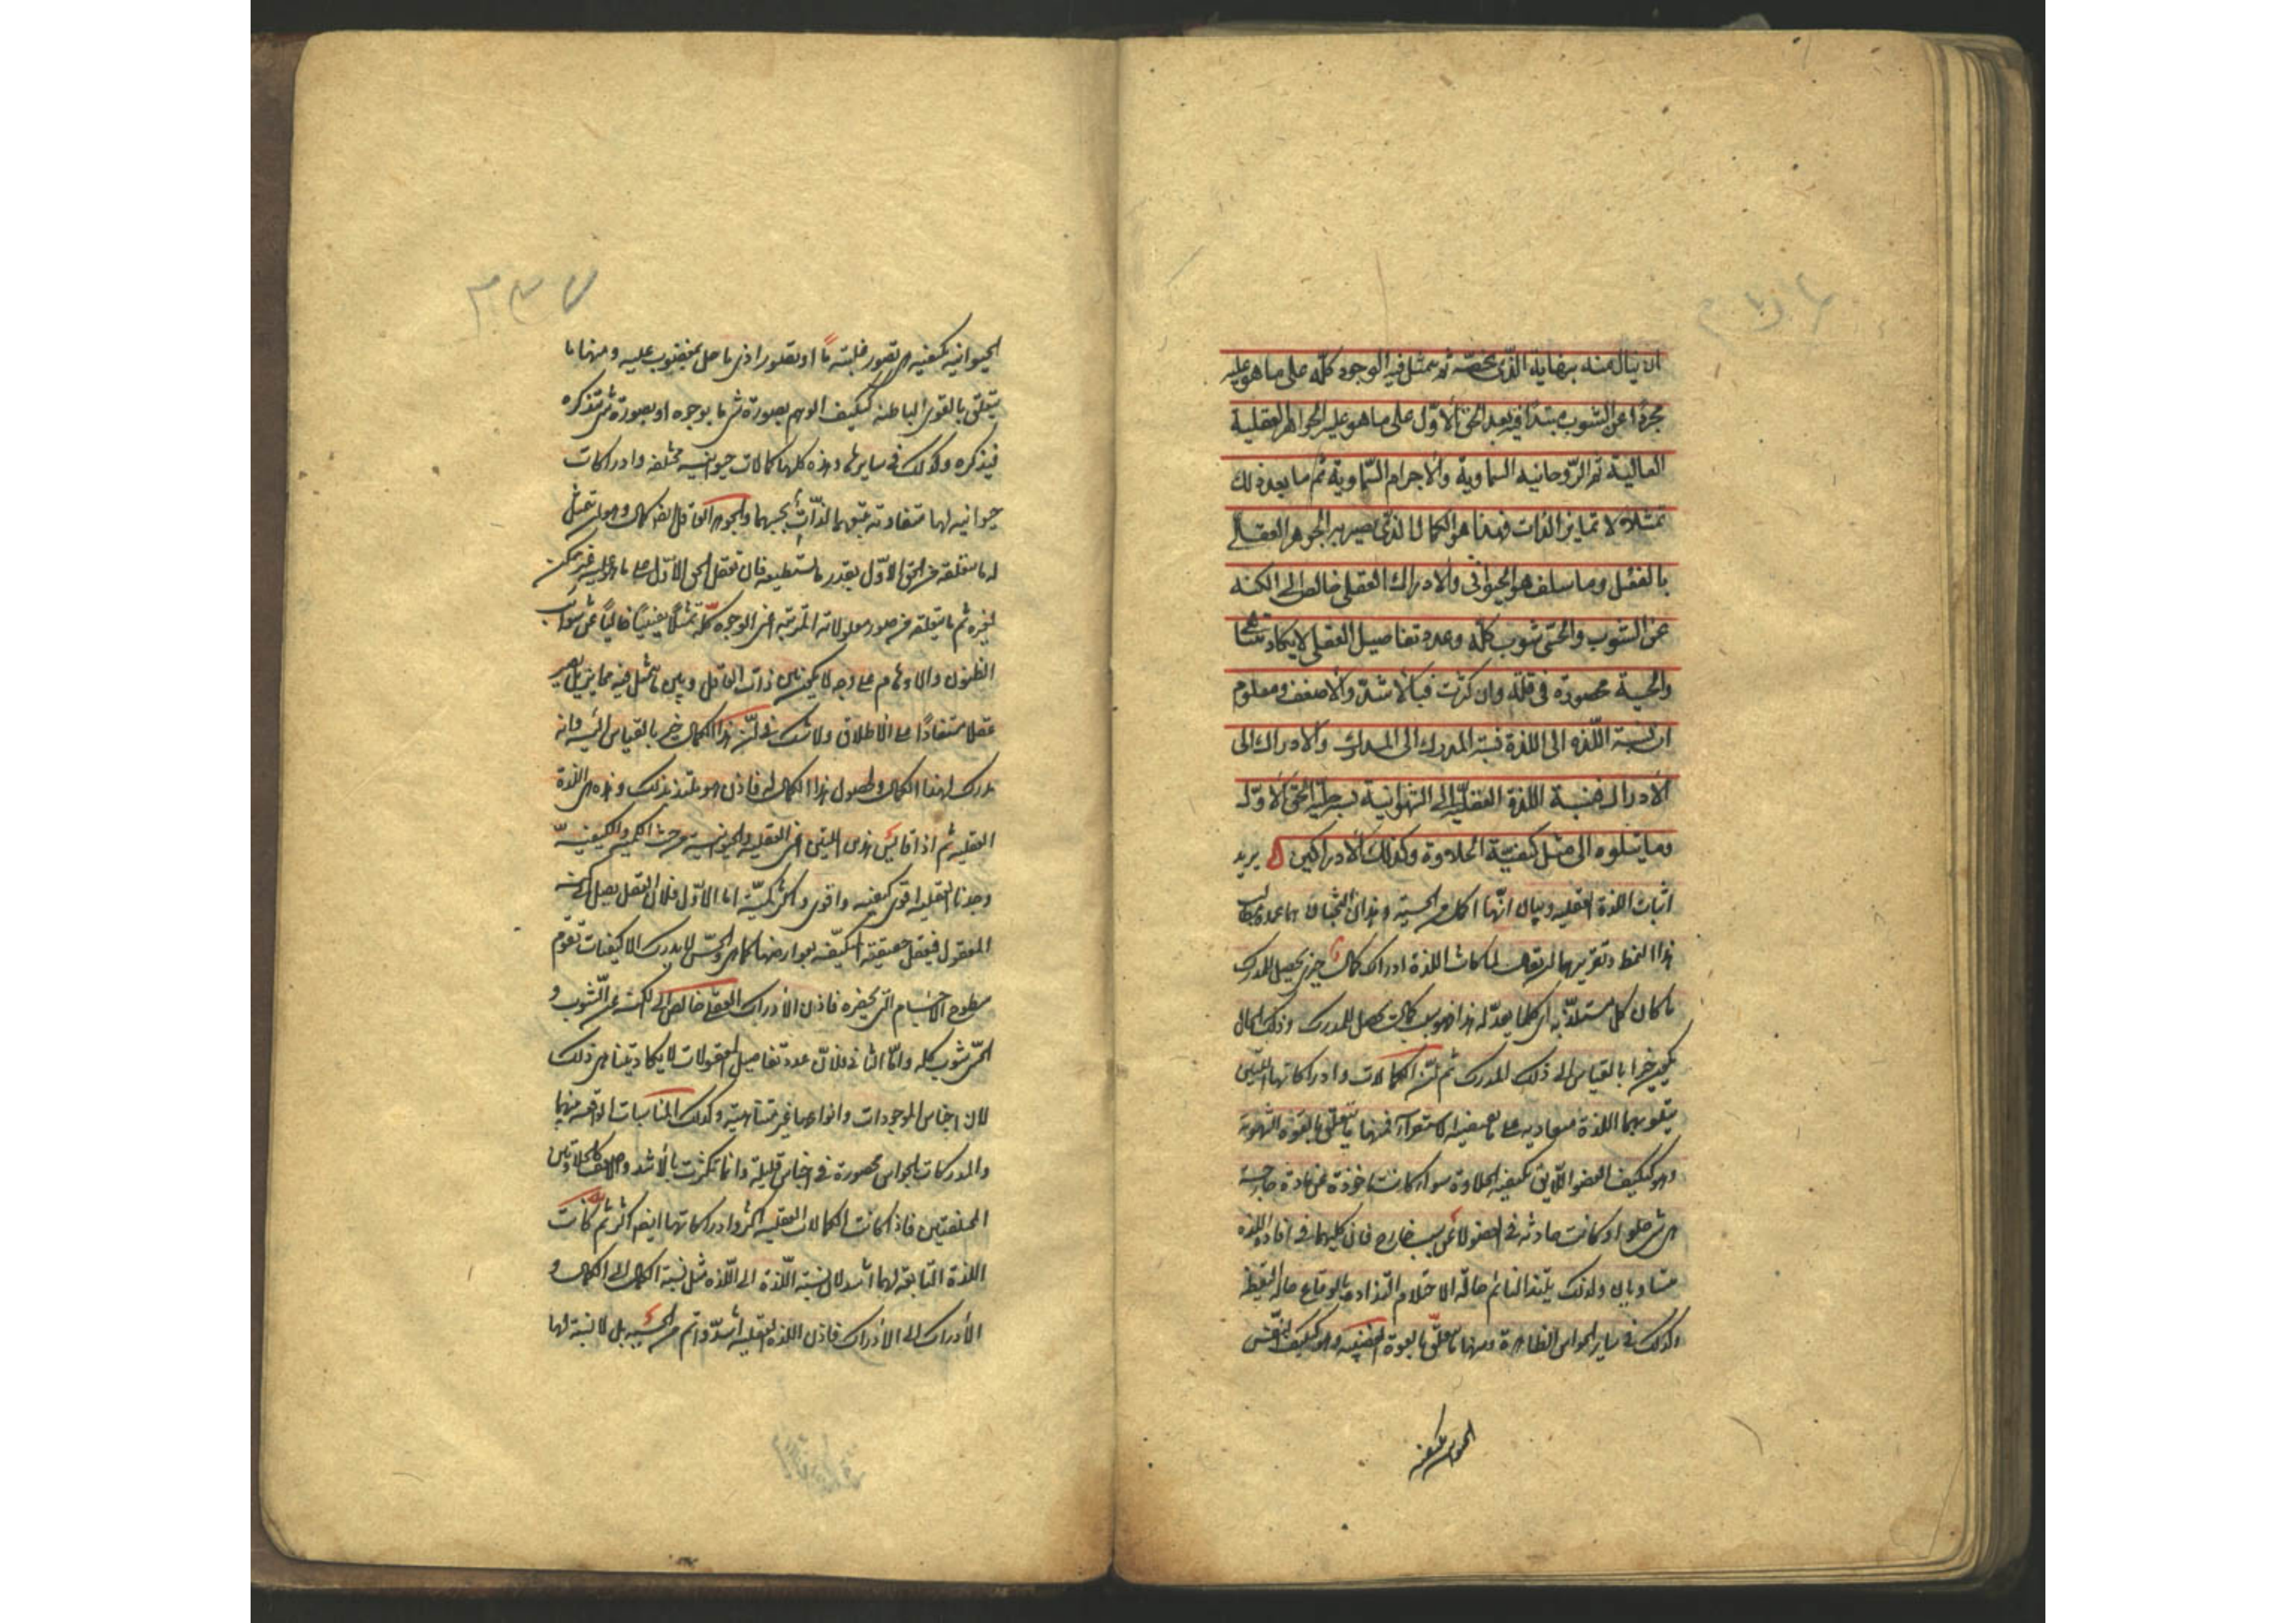 ان ينال منه ببهايه الذى يخصه ثم يتمثل فيه الوجود كله على ما هو عليه
مجردا عن الشوب مبتدأ فيه بعد الحق الأول على ما هو عليه الجواهر العقلية
العالية ثم الروحانيه السماوية والاجرام السماوية ثم ما بعد ذلك
تمثلا لا تمايز الذات فهذا هو الكمال الذى يصير به الجوهر العقلي
بالفعل وما سلف هو الحيوانى والادراك العقلي خالص الى الكنه
عن الشوب والحسى شوب كله وعدد تفاصيل العقلي لا يكاد يتناهى
والحسية محصورة فى قلة وان كثرت فبالأشد والاضعف ومعلوم
ان نسبة اللذه الى اللذة نسبة المدرك الى المدرك والادراك الى
الأدراك فنسبة اللذة العقلية الى الشهوانية نسبة جلية الحق الاول
وما يتلوه الى مثل كيفية الحلاوة وكذلك الأدراكين يريد
اثبات اللذة العقليه وبيان انها اكمل من الحسية وهذان البحثان هما عمدة مطالب
هذا النمط وتقريرهما ان يقال لما كانت اللذة ادراك كمال خيرى يحصل للمدرك
ما كان كل مستلذ به اى كلما يعد لذيذا فهو سبب كمال يحصل للمدرك وذلك الكمال
يكون خيرا بالقياس الى ذلك المدرك ثم ان الكمالات وادراكاتها اللتين
يتلو بهما اللذة متفاوتة على ما يقتضيه الاستقراء فمنها ما يتعلق بالقوة الشهوية
وهو كتكيف العضو الذايق بكيفيه الحلاوة سواء كانت ماخوذة عن مادة خارجية
هى شىء حلو او كانت حادثه فى العضو لا عن سبب خارج فان كليهما فى افادة اللذه
متساويان ولذلك يلتذ النائم حالة الاحتلام التذاذه بالوقاع حالة اليقظة
وكذلك فى ساير الحواس الظاهرة ومنها ما يتعلق بالقوة الغضبيه وهو كتكيف النفس
الحيوانيه بكيفيه
الحيوانيه بكيفيه هى تصور غلبة ما او تصور اذى ما حل بمغضوب عليه ومنها ما
يتعلق بالقوى الباطنه كتكيف الوهم بصورة شىء ما يرجوه او بصورة شىء يتذكره
فيذكره وكذلك فى سايرها وهذه كلها كمالات حيوانيه مختلفه وادراكات
حيوانيه لها متفاوته يتبعها لذات بحسبها وللجوهر العاقل ايضا كمال وهو ان يتمثل
له ما يتعلقه من الحق الاول بقدر ما يستطيعه فان تعقل الحق الاول على ما هو عليه غير ممكن
لغيره ثم ما يتعلقه من صور معلولاته المرتبه اعنى الوجود كله تمثلا يقينيا خاليا عن شوائب
الظنون والاوهام على وجه لا يكون بين ذات العاقل وبين ما تمثل فيه تمايز بل يصير
عقلا مستفادا على الاطلاق ولا شك فى ان هذا الكمال خير بالقياس اليه وانه
مدرك لهذا الكمال ولحصول هذا الكمال له فاذن هو ملتذ بذلك وهذه هى اللذة
العقليه ثم اذا قايس هذين اعنى العقليه والحيوانيه من حيث الكميه والكيفية
وجدنا العقليه اقوى كيفيه واكثر كمية اما الاول فلان العقل يصل الى كنه
المعقول فيعقل حقيقته المكتنفه بعوارضها كما هى والحس لا يدرك الا كيفيات تقوم
بسطوح الاجسام التى تحضره فاذن الادراك العقلى خالص الى الكنه عن الشوب و
الحسى شوب كله واما الثانى فلان عدد تفاصيل المعقولات لا يكاد يتناهى وذلك
لان اجناس الموجودات وانواعها غير متناهية وكذلك المناسبات الواقعه منهما
والمدركات بالحواس محصورة فى اجناس قليلة وانما تكثرت بالاشد والاضعف كالحلاوتين
المختلفتين فاذا كانت الكمالات العقليه اكثر وادراكاتها ايضا اكثر ثم كانت
اللذة التابعة لهما اشد لان نسبة اللذة الى اللذه مثل نسبة الكمال الى الكمال و
الأدراك الى الأدراك فاذن اللذة العقليه اشد واتم من الحسيه بل لا نسبة لها